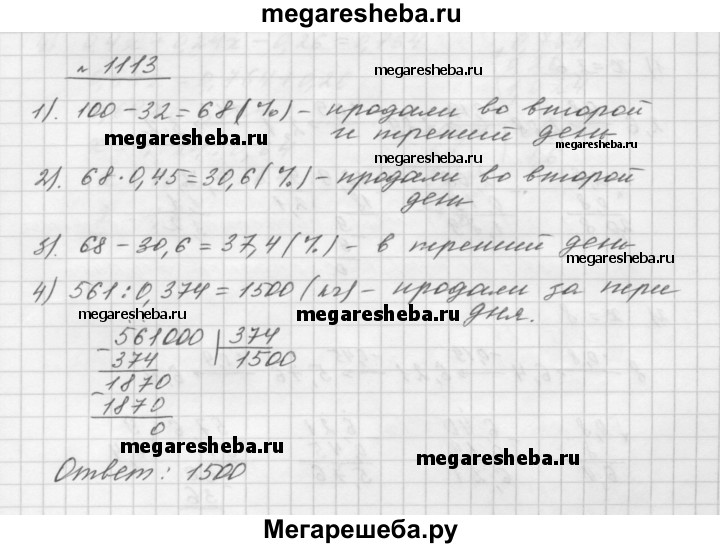 megaresheba.ru
№ 1113
megaresheba.ru
1). 100 − 32 = 68 (%) – продали во второй
и третий день
megaresheba.ru
megaresheba.ru
megaresheba.ru
2). 68 · 0,45 = 30,6 (%) – продали во второй
день
3). 68 − 30,6 = 37,4 (%) – в третий день
megaresheba.ru
4) 561 : 0,374 = 1500 (кг) – продали за три
дня.
megaresheba.ru
megaresheba.ru
561000 | 374
− 374 1500
− 1870
1870
0
megaresheba.ru
megaresheba.ru
Ответ: 1500
Мегарешеба.ру